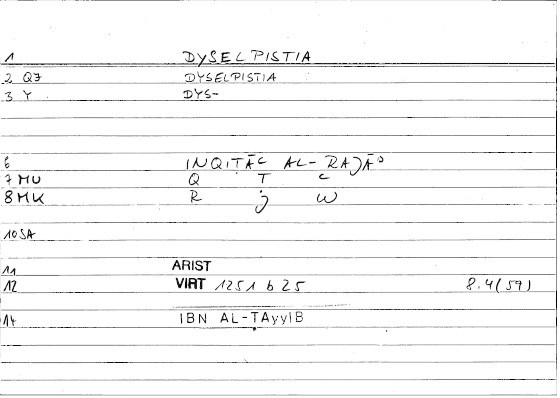 1 DYSELPISTIA
2 Q7 DYSELPISTIA
3 Y DYS-
6 INQITĀʿ AL-RAJĀʾ
7 MU Q T ʿ
8 MK R j W
10 SA
11 ARIST
12 VIRT 1251 b 25 8.4(59)
14 IBN AL-TAyyIB